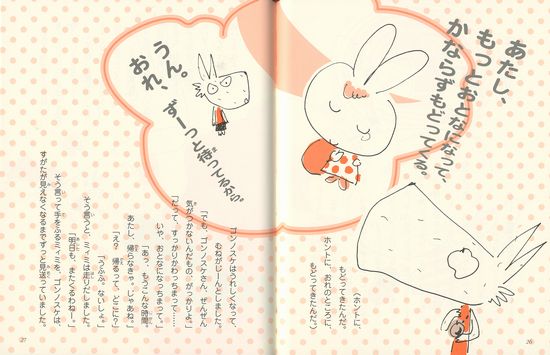 あたし、
もっとおとなになって、
かならずもどってくる。
うん。
おれ、
ずーっと待ってるから。
(ホントに、
もどってきたんだ。
ホントに、おれのところに、
もどってきたんだ。)
ゴンノスケはうれしくなって、
むねがじーんとしました。
「でも、ゴンノスケさん、ぜんぜん
気がつかないんだもの。がっかりよ。」
「だって、すっかりかわっちまって……
いや、おとなになっちまって。」
「あっ、もうこんな時間。
あたし、帰らなきゃ。じゃあね。」
「え? 帰るって、どこに?」
「うふふ。ないしょ。」
そう言うと、ミミは走りだしました。
「明日も、またくるわねー。」
そう言って手をふるミミを、ゴンノスケは、
すがたが見えなくなるまでずっと見送っていました。
27
26